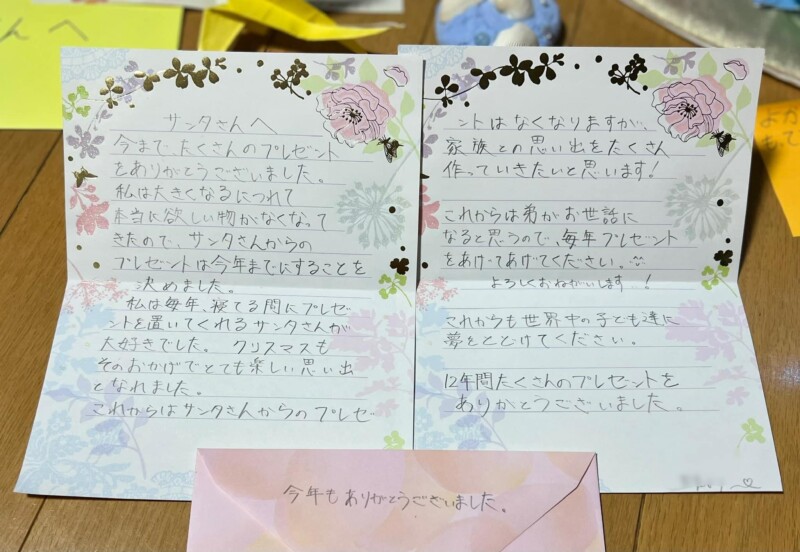 んへ
サンタさんへ
今まで、たくさんのプレゼント
をありがとうございました。
私は大きくなるにつれて
本当に欲しい物がなくなって
きたので、サンタさんからの
プレゼントは今年までにすることを
決めました。
私は毎年、寝てる間にプレゼ
ントを置いてくれるサンタさんが
大好きでした。 クリスマスも
そのおかげでとても楽しい思い出
となれました。
これからはサンタさんからのプレゼ
ントはなくなりますが、
家族との思い出をたくさん
作っていきたいと思います!
これからは弟がお世話に
なると思うので、毎年プレゼント
をあげてあげてください。
よろしくおねがいします..!
これからも世界中の子ども達に
夢をとどけてください。
12年間たくさんのプレゼントを
ありがとうございました。
今年もありがとうございました。
よか
もって